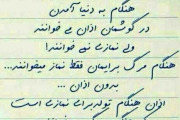 هنگام به دنیا آمدن
در گوشمان اذان می خوانند
ولی نمازی نمی خوانند!
هنگام مرگ برایمان فقط نماز میخوانند...
بدون اذان ...
اذان هنگام تولد برای نمازی است